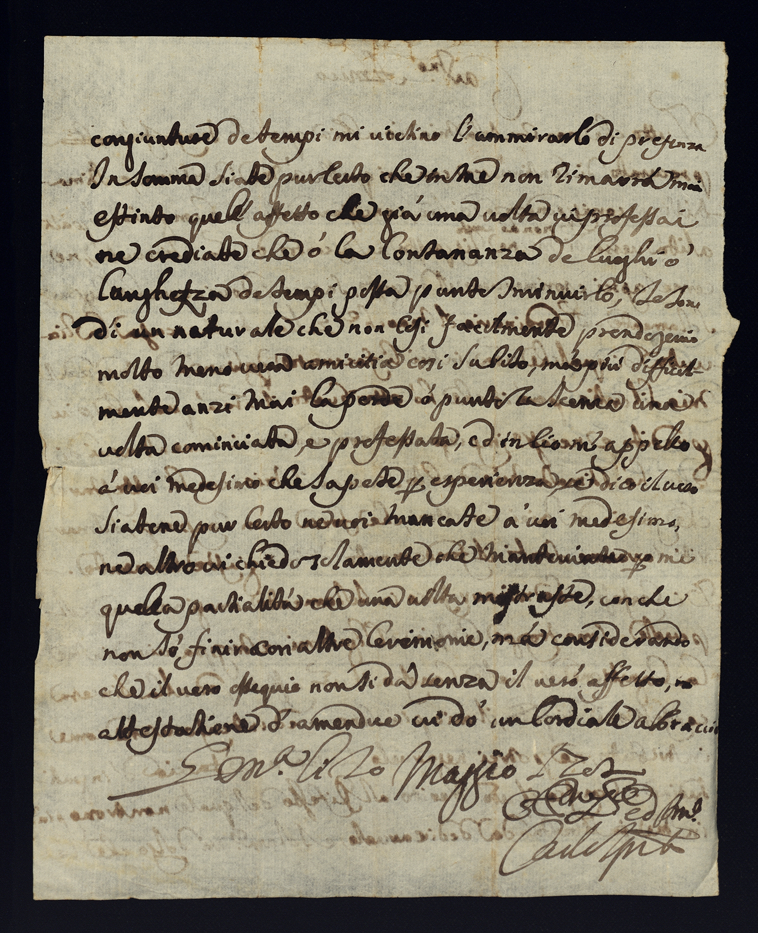 congiunture de tempi mi vietino l'ammirarlo di presenza
In somma siate pur certo che in me non rimarrà mai
estinto quell'affetto che già una volta vi professai
ne crediate che ò la lontananza de luoghi ò
lunghezza de tempi possa punto sminuirlo,
di un naturale che non così facilmente prende genio
molto meno vera amicitia così subito, mà più difficil-
mente anzi mai la perde ò punto la scema una
volta cominciata, e professata, ed in ciò m'appello
á voi medesimo che sapete p esperienza dico il vero
siatene pur certo ne voi mancate a voi medesimo,
ne altro vi chiedo solamente che p mé
quella partialità che una volta, con che
non só finir con altre Ceremonie, má considerando
che il vero ossequio non si dà senza il vero affetto,
attestatione d'ramendue vi dó un Cordiale abbraccio
Maggio
Carlo